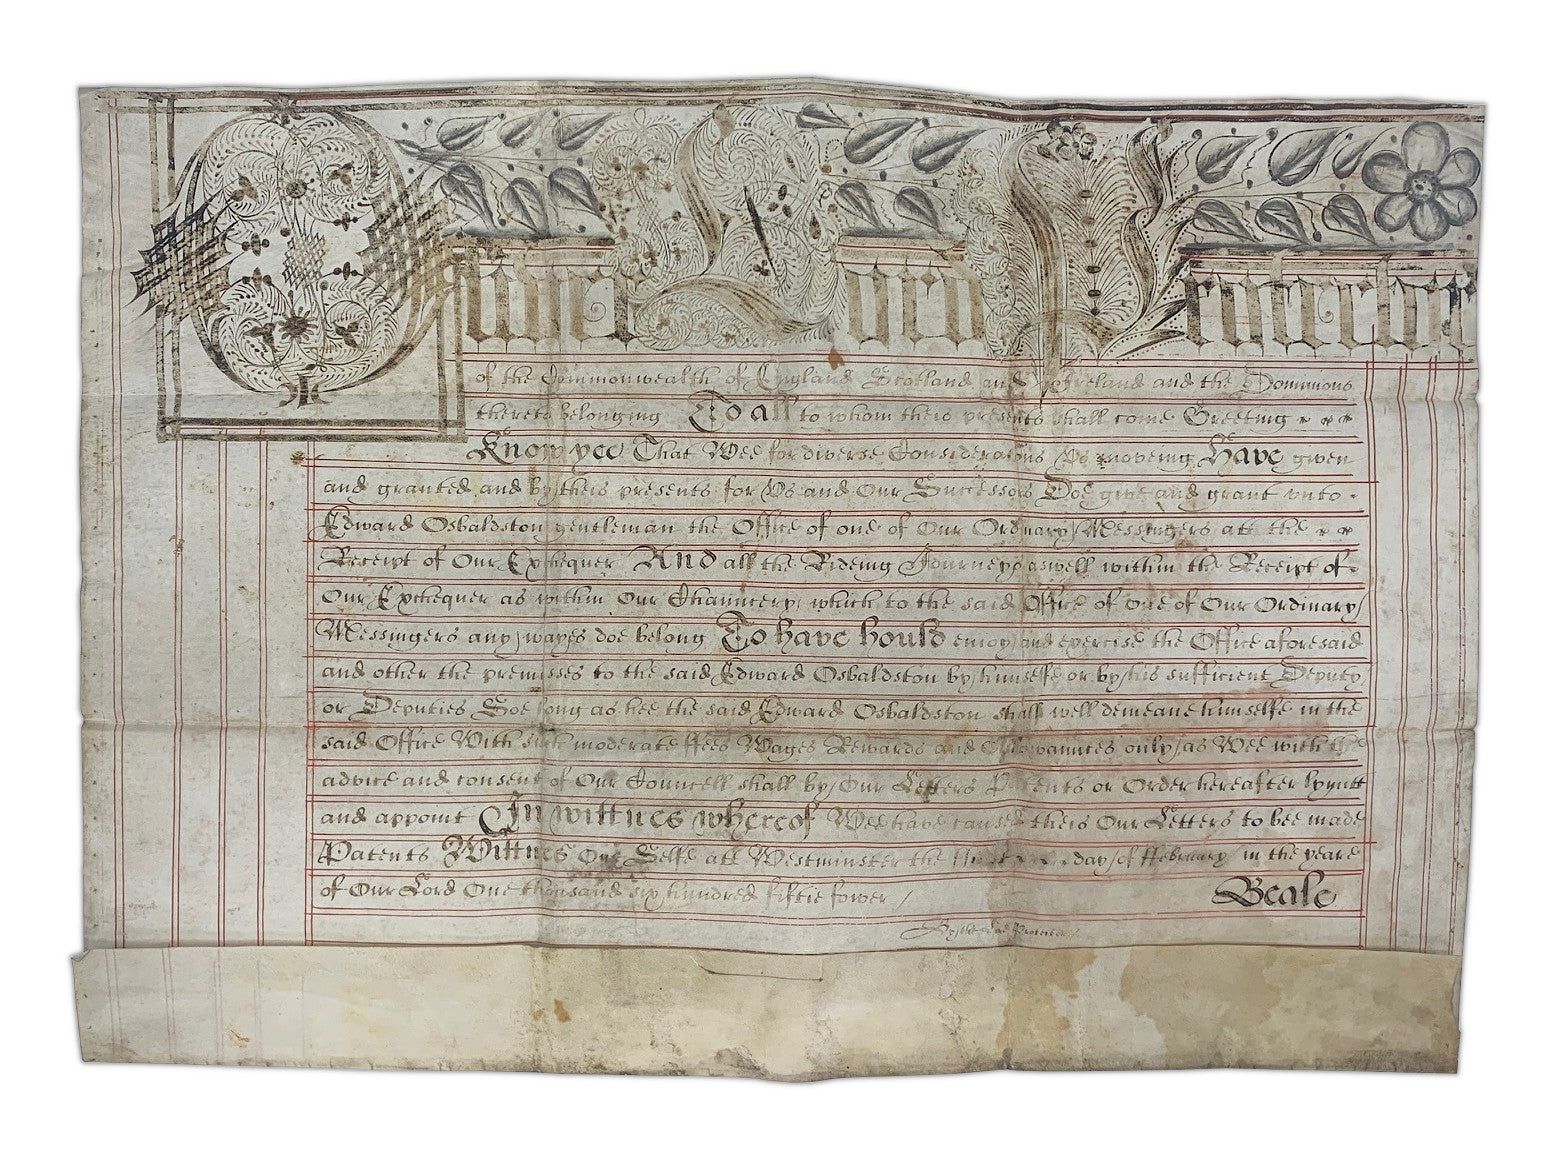 Oliver Lord Protector
of the Commonwealth of England Scotland and Ireland and the Dominions
thereto belonging To all to whom theis presents shall come Greeting
Know yee That Wee for diverse Considerations Us moveing Have given
and granted and by theis presents for Us and Our Successors Doe give and grant unto
Edward Osbaldston gentleman the Office of one of Our Ordinary Messingers att the
Receipt of Our Exchequer And all the Rideing Journeys aswell within the Receipt of
Our Exchequer as within Our Chauncery which to the said Office of one of Our Ordinary
Messingers any wayes doe belong To have hould enioy and exercise the Office aforesaid
and other the premisses to the said Edward Osbaldston by himselfe or by his sufficient Deputy
or Deputies Soe long as hee the said Edward Osbaldston shall well demeane himselfe in the
said Office With such moderate ffees Wages Rewards and Allowannces only as Wee with the
advice and consent of Our Councell shall by Our Letters Patents or Order hereafter lymitt
and appoint In wittnes whereof Wee have caused theis Our Letters to bee made
Patents Wittnes Our Selfe att Westminster the day of ffebruary in the yeare
of Our Lord One thousand six hundred fiftie fower
Beale
By the Lord Protector